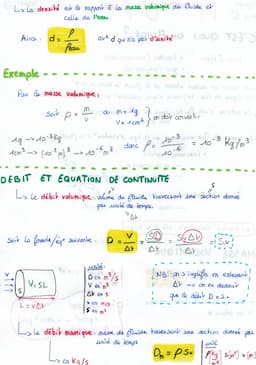 ↳ La densité est le rapport à la masse volumique du fluide et
celle de l'eau.
Ainsi : d = ρ / ρeau avec d qui n'a pas d'unité
Exemple
Pour la masse volumique :
Soit ρ = m/v or, m = 1g
V = 1cm³ } on doit convertir
1g → 10⁻³ kg
1cm³ → (10⁻²m)³ → 10⁻⁶ m³
donc ρ = 10⁻³ / 10⁻⁶ = 10⁻³ kg/m³
DEBIT ET ÉQUATION DE CONTINUITÉ
↳ Le débit volumique : volume de fluide traversant une section donnée
par unité de temps.
Soit la formule/eq° suivante : D = V/Δt = SL/Δt = S v Δt/Δt = S.v
V = SL
L = vΔt
unité
D en m³/s
V en m³
Δt en s
v en m/s
S en m²
NB : on simplifie en enlevant
Δt → on en devient
que le débit D = S.v
↳ Le débit massique : masse de fluide traversant une section donnée par
unité de temps
↳ en kg/s
Dm = ρ S v
unité